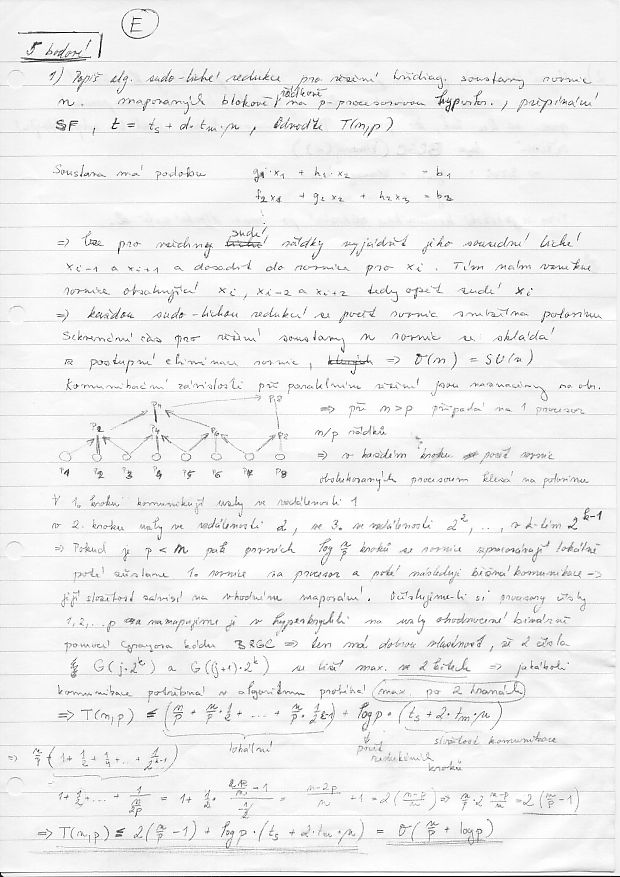 E
5 bodové!
1) Popiš alg. sudo-liché redukce pro řešení tridiag. soustavy rovnic
n. mapovaných blokově řádkově na p-procesorovou hyperkr., přepínání
SF, t = ts + d·tm·μ, odvoďte T(n,p)
Soustava má podobu g1·x1 + h1·x2 = b1
f2x1 + g2x2 + h2x3 = b2
⇒ lze pro všechny sudé řádky vyjádřit jeho sousední liché
xi-1 a xi+1 a dosadit do rovnice pro xi. Tím nám vznikne
rovnice obsahující xi, xi-2 a xi+2 tedy opět sudé xi
⇒ každou sudo-lichou redukcí se počet rovnic smrskl na polovinu
Sekvenční čas pro řešení soustavy n rovnic se skládá
z postupné eliminace rovnic, ⇒ O(n) = SU(n)
Komunikační závislosti při paralelním řešení jsou naznačeny na obr.
P4 P8
⇒ při n>p připadá na 1 procesor
P2 P4 P6 P8
n/p řádků
⇒ v každém kroku počet rovnic
P1 P2 P3 P4 P5 P6 P7 P8
obsluhovaných procesorem klesá na polovinu
V 1. kroku komunikují uzly ve vzdálenosti 1
v 2. kroku uzly ve vzdálenosti 2, ve 3. ve vzdálenosti 2^2, .., v k-tém 2^k-1
⇒ Pokud je p < n pak prvních log n/p kroků se rovnice zpracovávají lokálně
poté zůstane 1. rovnice na procesor a poté následuje běžná komunikace →
její složitost závisí na vhodném mapování. Očíslujeme-li si procesory čísly
1,2,...p a namapujeme je v hyperkrychli na uzly ohodnocené binárně
pomocí Grayova kódu BRGC ⇒ ten má dobrou vlastnost, že 2 čísla
G(j·2^k) a G((j+1)·2^k) se liší max. ve 2 bitech ⇒ jakákoli
komunikace potřebná v algoritmu probíhá max. po 2 hranách
⇒ T(n,p) ≤ (n/p + n/p·1/2 + ... + n/p·1/2^k-1) + log p·(ts + 2·tm·μ)
lokální počet redukčních kroků složitost komunikace
⇒ n/p (1 + 1/2 + 1/4 + ... + 1/2^k-1)
⇒ T(n,p) ≤ 2(n/p - 1) + log p·(ts + 2·tm·μ) = O(n/p + log p)